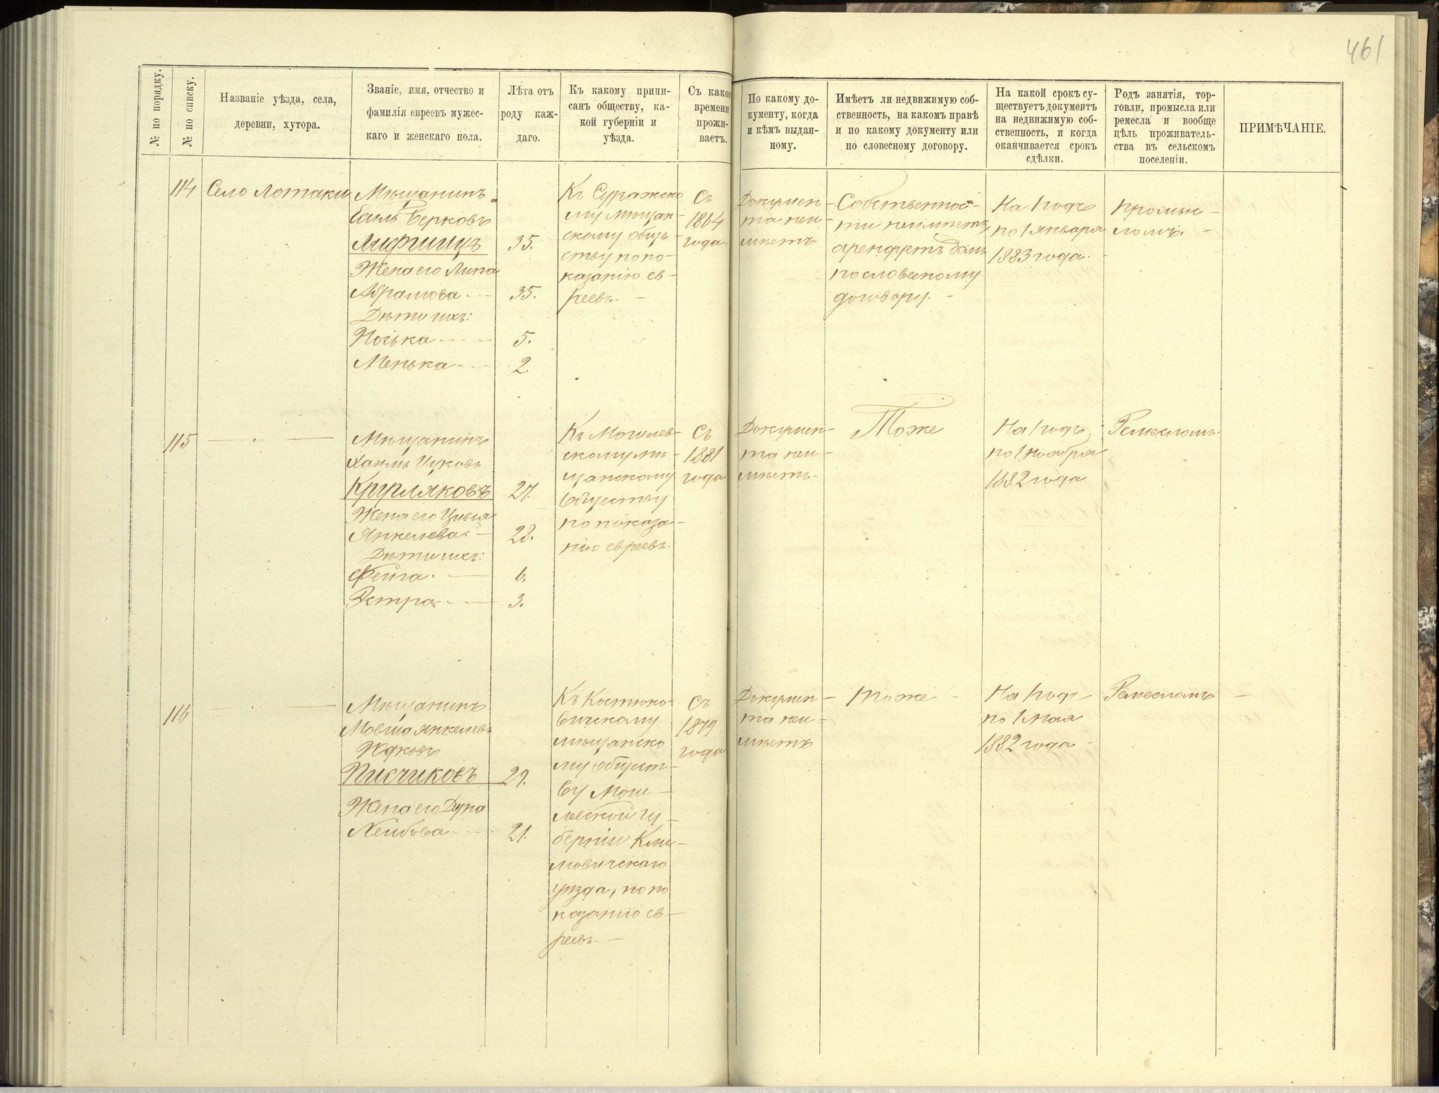 461
№ по порядку.
№ по списку.
Названіе уѣзда, села,
деревни, хутора.
Званіе, имя, отчество и
фамилія евреевъ мужес-
каго и женскаго пола.
Лѣта отъ
роду каж-
даго.
Къ какому припи-
санъ обществу, ка-
кой губерніи и
уѣзда.
Съ како
времени
прожи-
ваетъ.
По какому до-
кументу, когда
и кѣмъ выдан-
ному.
Имѣетъ ли недвижимую соб-
ственность, на какомъ правѣ
и по какому документу или
по словесному договору.
На какой срокъ су-
ществуетъ документъ
на недвижимую соб-
ственность, и когда
оканчивается срокъ
сдѣлки.
Родъ занятія, тор-
говли, промысла или
ремесла и вообще
цѣль проживатель-
ства въ сельскомъ
поселеніи.
ПРИМѢЧАНІЕ.
114
Село Лотаки
Мѣщанинъ
Берковъ
Лифшицъ 35.
Жена его Липа
Абрамова 35.
Дѣти ихъ:
Носька 5.
Менька 2.
Къ Суражско
му мѣщан-
скому обще-
ству по по-
казанію ев-
реевъ.
Съ
1864
года
Докумен-
та неи-
мѣетъ
Собственнос-
ти неимѣетъ
арендуетъ домъ
пословесному
договору.
На 1 годъ
по 1 января
1883 года.
Промыс-
ломъ.
115
Мѣщанинъ
Хаимъ Ицковъ
Кругляковъ 27.
Жена его Цивья
Янкелева 28.
Дѣти ихъ:
Фейга 6.
Эстра 3.
Къ Могилев-
скому мѣ-
щанскому
обществу
по показа-
нію евреевъ.
Съ
1881
года
Докумен-
та неи-
мѣетъ.
Тоже
На 1 годъ
по 1 ноября
1882 года
Ремесломъ.
116
Мѣщанинъ
Мовша Янкелевъ
Писчиковъ 29.
Жена его
Лейбова 21.
Къ Костюко-
вичскому
мѣщанско
му общест-
ву Моги-
левской гу-
берніи Кли-
мовичскаго
уѣзда, по по
казанію ев-
реевъ.
Съ
1879
года
Докумен-
та неи-
мѣетъ
тоже
На 1 годъ
по 1 мая
1882 года
Ремесломъ